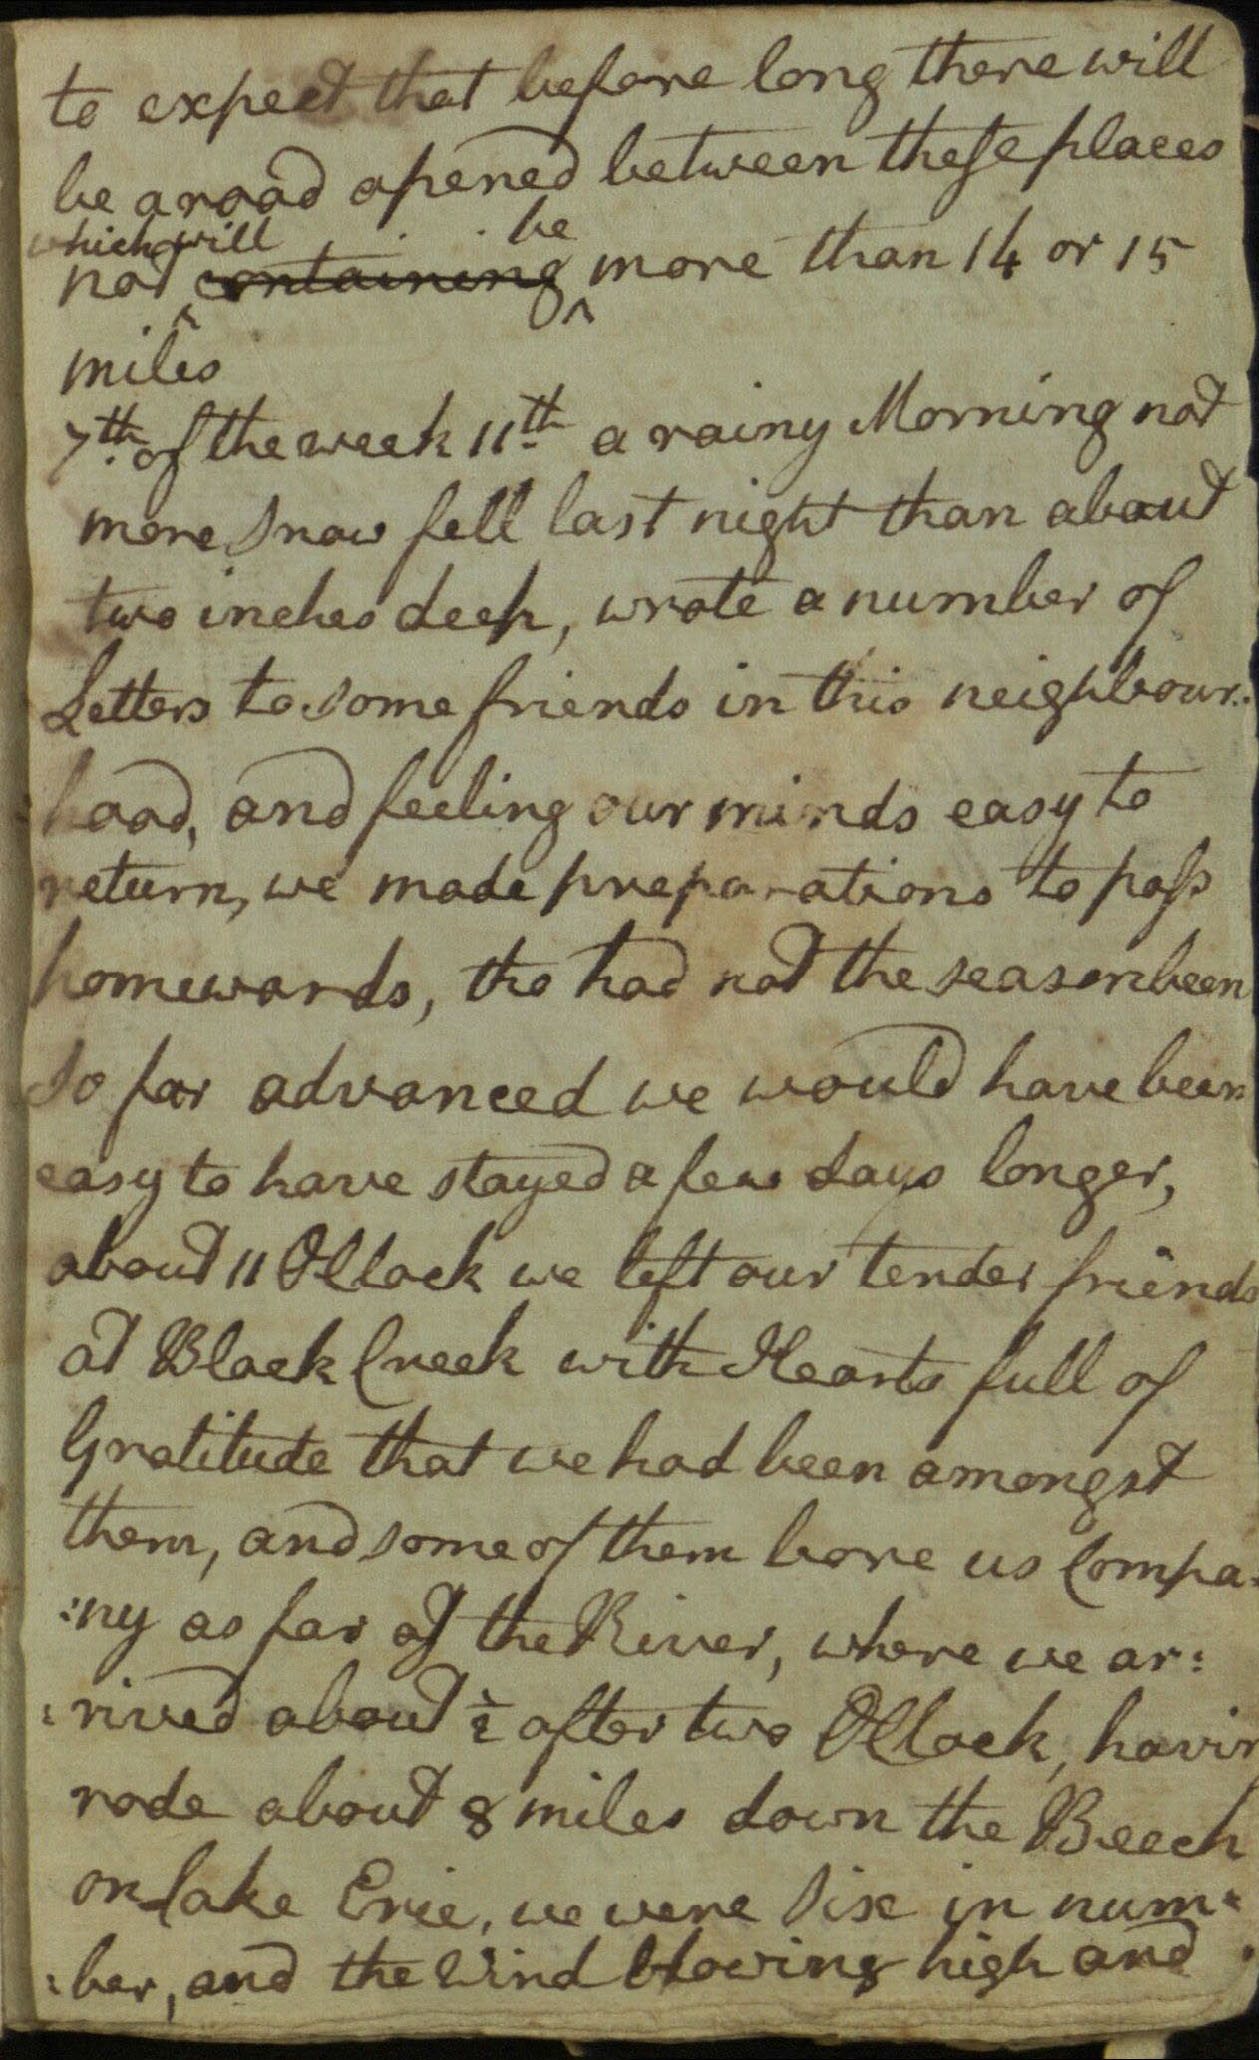 to expect that before long there will
be a road opened between these places
which will be
not containing more than 14 or 15
miles
7th. of the week 11th a rainy Morning not
more Snow fell last night than about
two inches deep, wrote a number of
Letters to some friends in this neighbour:
hood, and feeling our minds easy to
return, we made preparations to pass
homewards, tho had not the season been
So far advanced we would have been
easy to have stayed a few days longer,
about 11 OClock we left our tender friends
at Black Creek with Hearts full of
Gratitude that we had been amongst
them, and some of them bore us Compa:
:ny as far as the River, where we ar:
:rived about ½ after two OClock, havin
rode about 8 miles down the Beech
on Lake Erie, we were Six in num:
:ber, and the Wind blowing high and